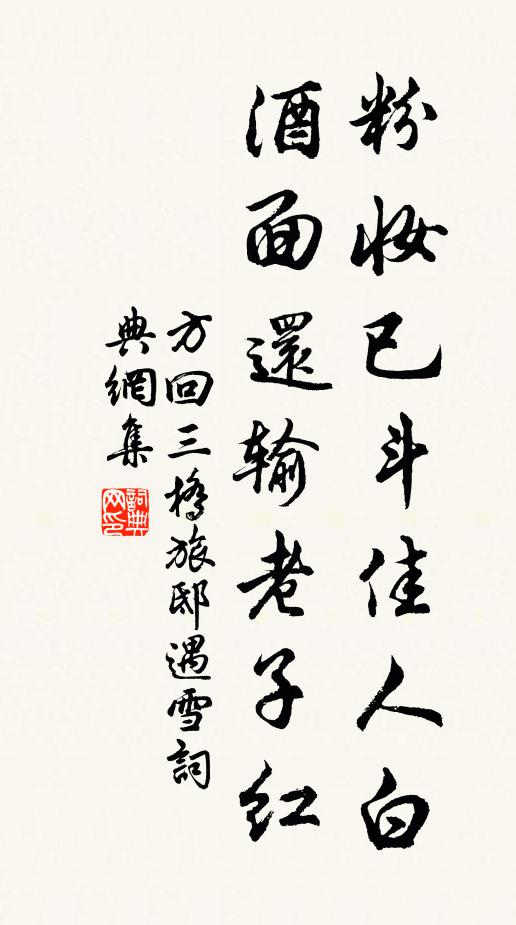 粉妆已斗佳人白
酒面還输老子红
方回三橋旅邸遇雪詞
典網集
詞典网印